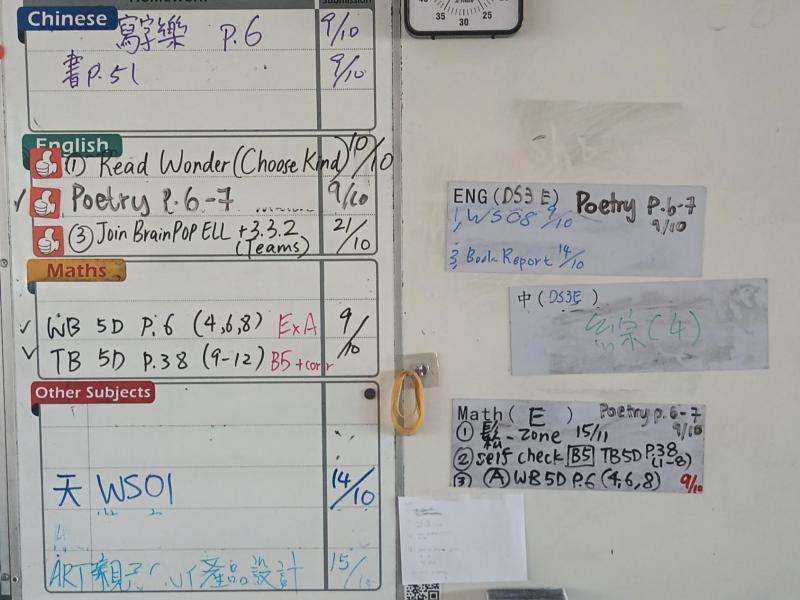 Submission
Chinese
寫字樂 P.6 9/10
書P.51 9/10
English
① Read Wonder (Choose Kind) 10/10
Poetry P.6-7 9/10
③ Join BrainPOP ELL + 3.3.2 (Teams) 21/10
Maths
WB 5D P.6 (4,6,8) ExA 9/10
TB 5D P.38 (9-12) B5 + corr
Other Subjects
天 WS01 14/10
ART 產品設計 15/
35 30 25
ENG (DS3 E) Poetry P.6-7
1, WS08 9/10 9/10
3, Book Report 14/10
中 (DS3E)
(4)
Math ( E ) Poetry p.6-7
① - Zone 15/11 9/10
② self check B5 TB5D P.38 (1-8)
③ A WB 5D P.6 (4,6,8) 9/10